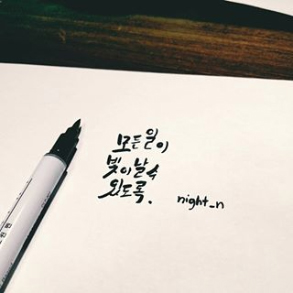 모든일이
빛이날수
있도록.
night_n